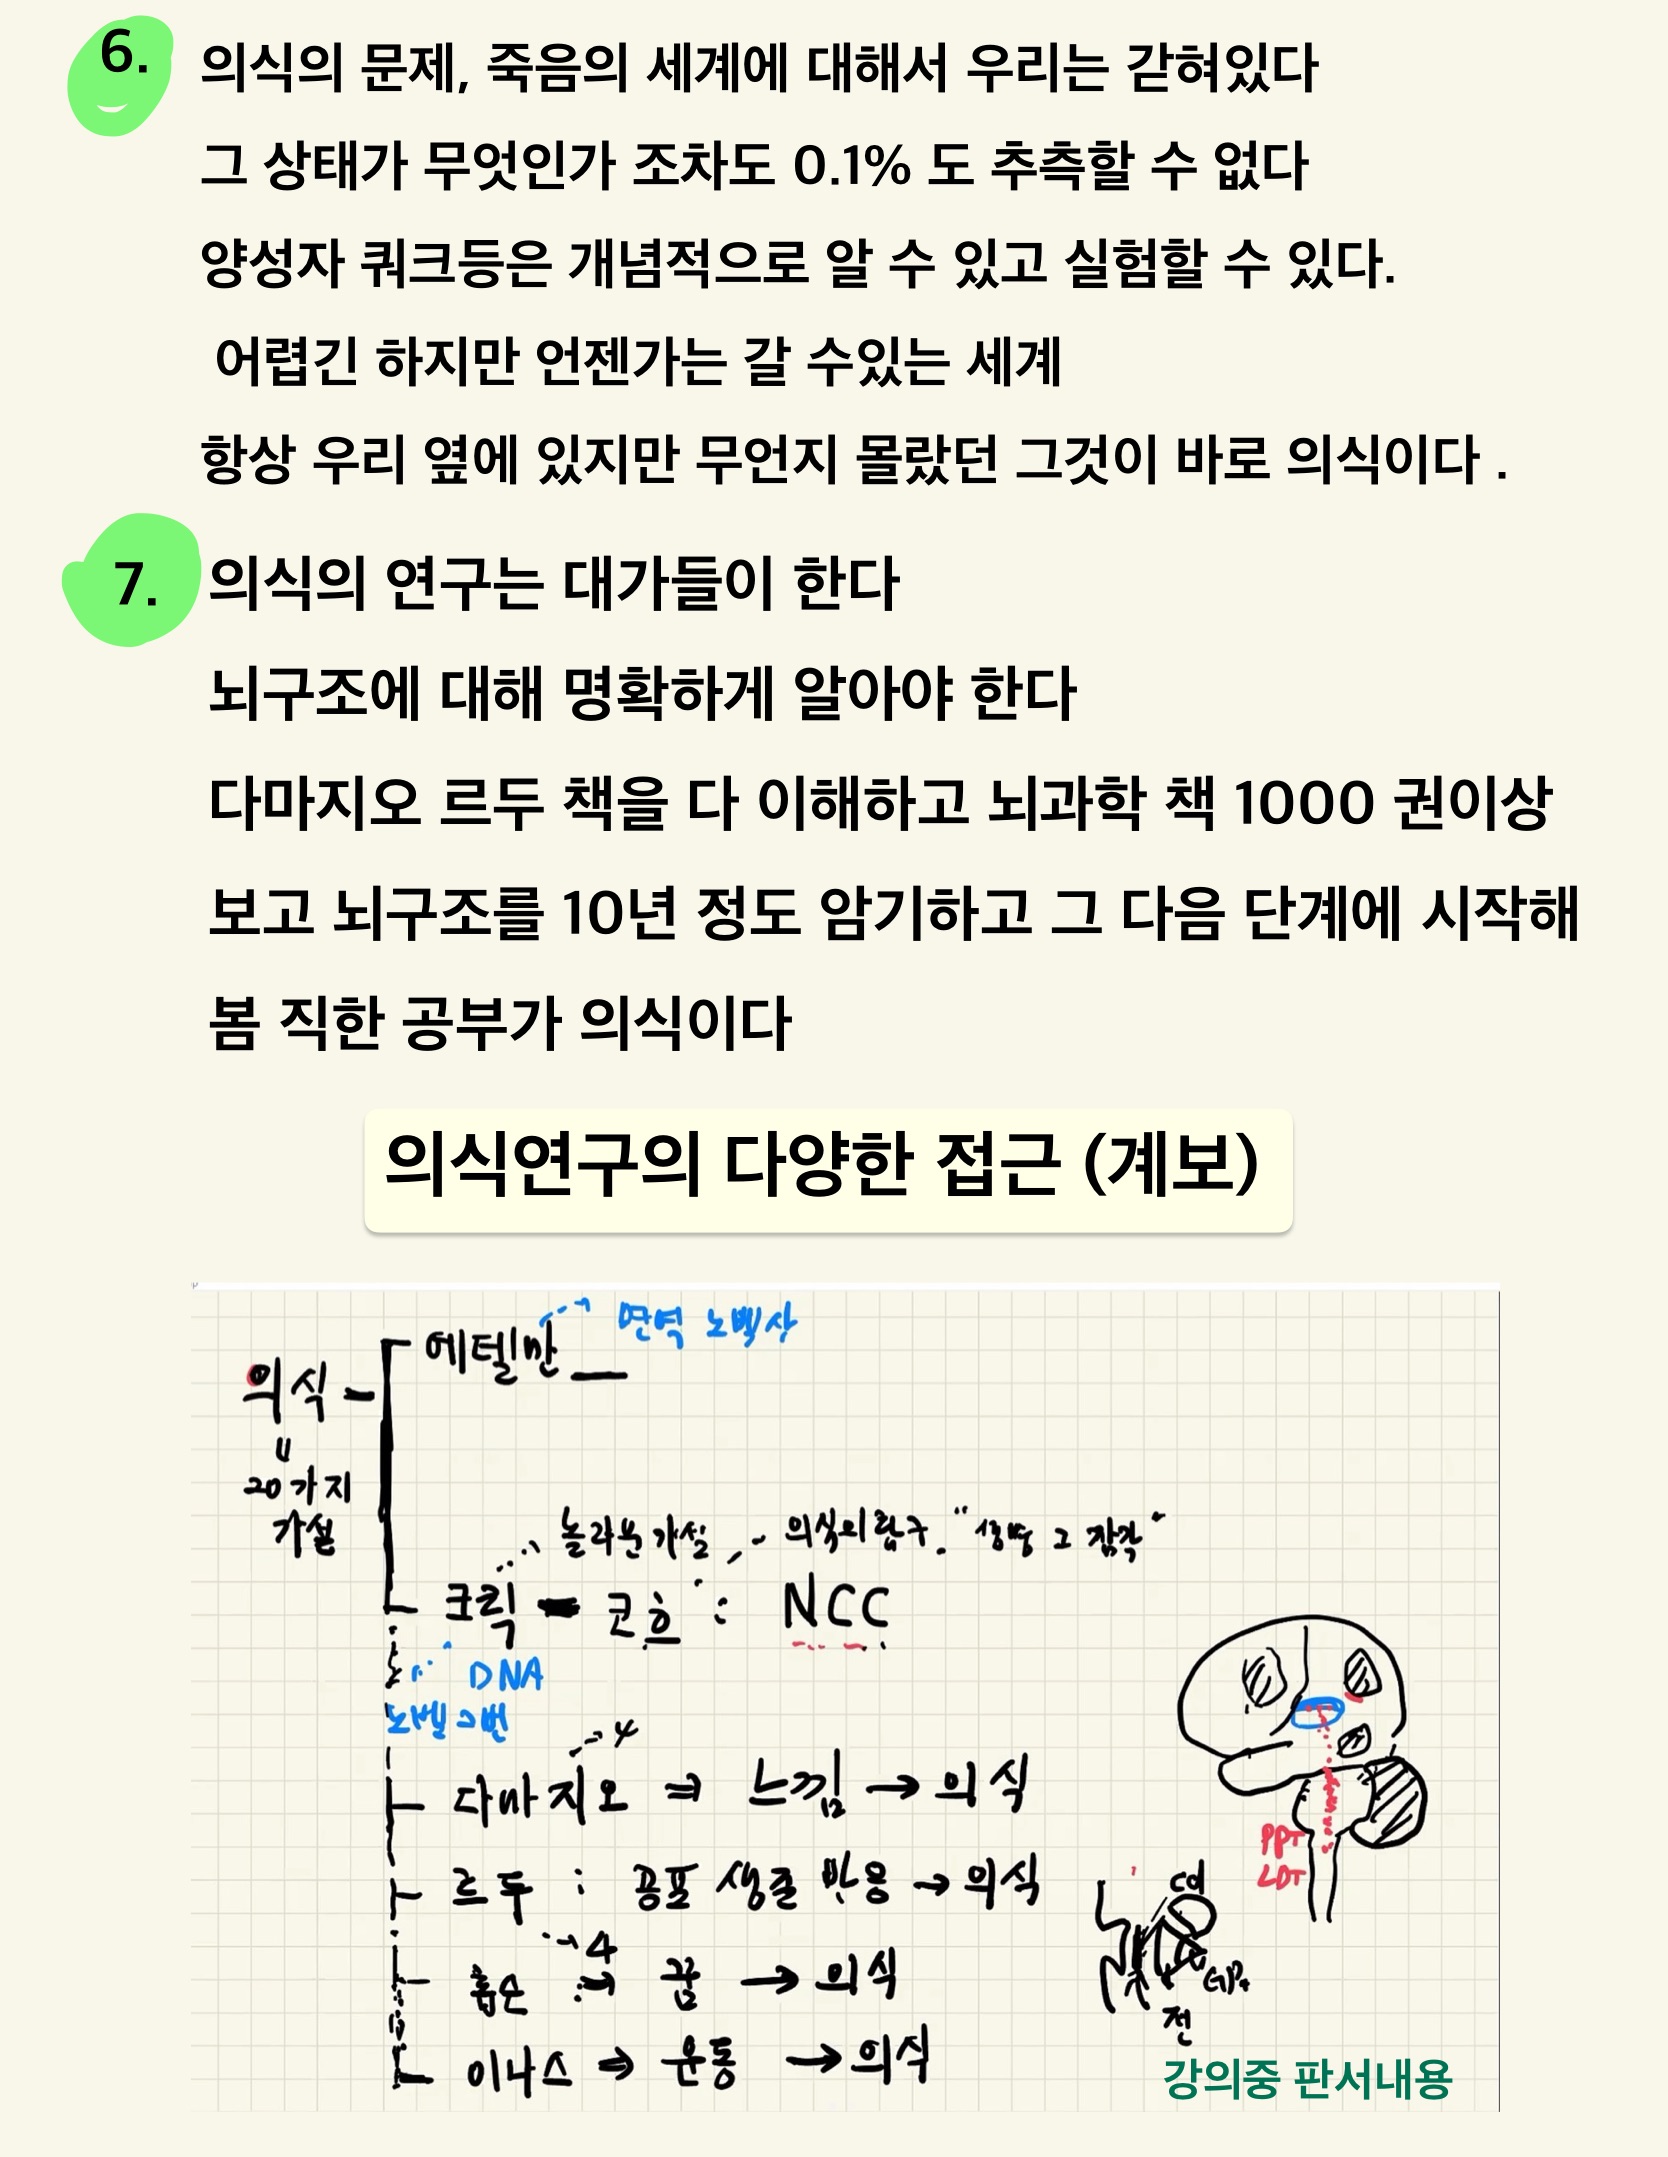 6. 의식의 문제, 죽음의 세계에 대해서 우리는 갇혀있다
그 상태가 무엇인가 조차도 0.1% 도 추측할 수 없다
양성자 쿼크등은 개념적으로 알 수 있고 실험할 수 있다.
어렵긴 하지만 언젠가는 갈 수있는 세계
항상 우리 옆에 있지만 무언지 몰랐던 그것이 바로 의식이다 .
7. 의식의 연구는 대가들이 한다
뇌구조에 대해 명확하게 알아야 한다
다마지오 르두 책을 다 이해하고 뇌과학 책 1000 권이상
보고 뇌구조를 10년 정도 암기하고 그 다음 단계에 시작해
봄 직한 공부가 의식이다
의식연구의 다양한 접근 (계보)
에델만 면역 노벨상
의식
20가지
가설
놀라운 가설 의식의 탐구 "생명 그 잠깐"
크릭 코흐 : NCC
DNA
노벨
다마지오 ⇒ 느낌 → 의식
4
르두 : 공포 생존 반응 → 의식
홉슨 ⇒ 꿈 → 의식
4
이나스 ⇒ 운동 → 의식
PPT
LDT
cd
GPi
전
강의중 판서내용